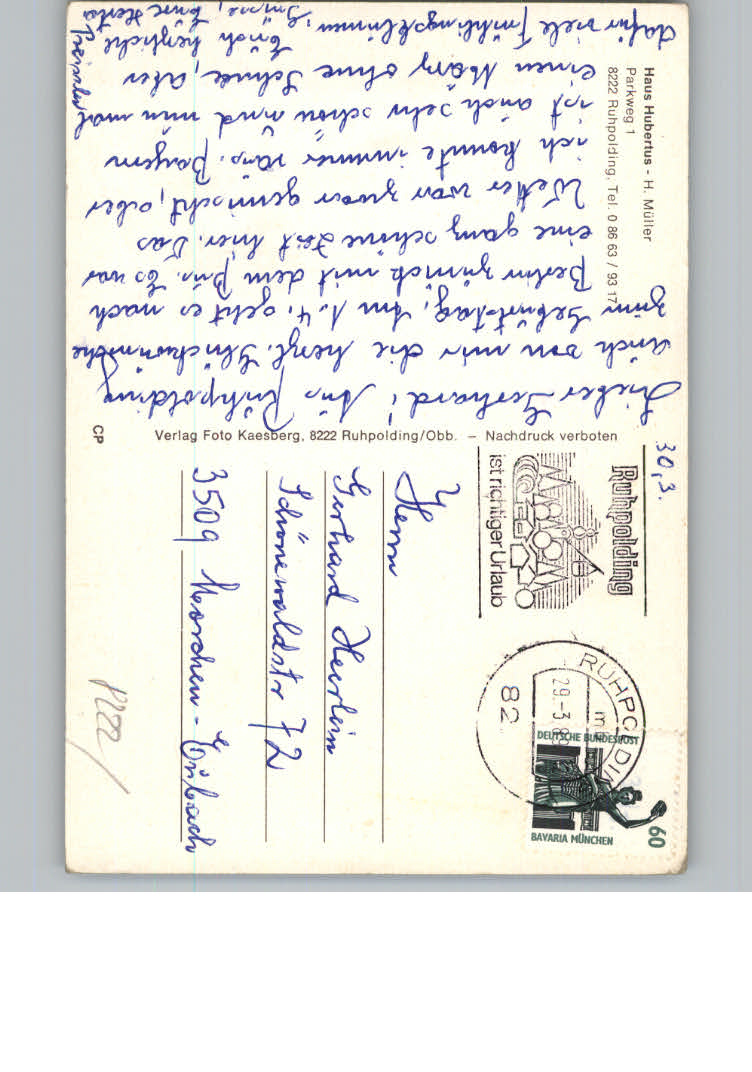 Haus Hubertus - H. Müller
Parkweg 1
8222 Ruhpolding, Tel. 0 86 63 / 93 17
30.3.
Lieber Gerhard! Aus Ruhpolding
auch von mir die herzl. Glückwünsche
zum Geburtstag. Am 1.4. geht es nach
Berlin zurück mit dem Bus. Es war
eine ganz schöne Zeit hier. Das
Wetter war zwar gemischt, aber
ich konnte immer raus. Bayern
ist auch sehr schön und nun mal
einen März ohne Schnee, aber
dafür viele Frühlingsblumen.
Euch herzliche
Grüsse, Eure Herta
Verlag Foto Kaesberg, 8222 Ruhpolding/Obb. – Nachdruck verboten
CP
Ruhpolding
ist richtiger Urlaub
RUHPOLDING
29.-3.90
82
DEUTSCHE BUNDESPOST
BAVARIA MÜNCHEN
60
Herrn
Gerhard Heerlein
Schönewaldstr 72
3509 Morschen - Eubach
8222